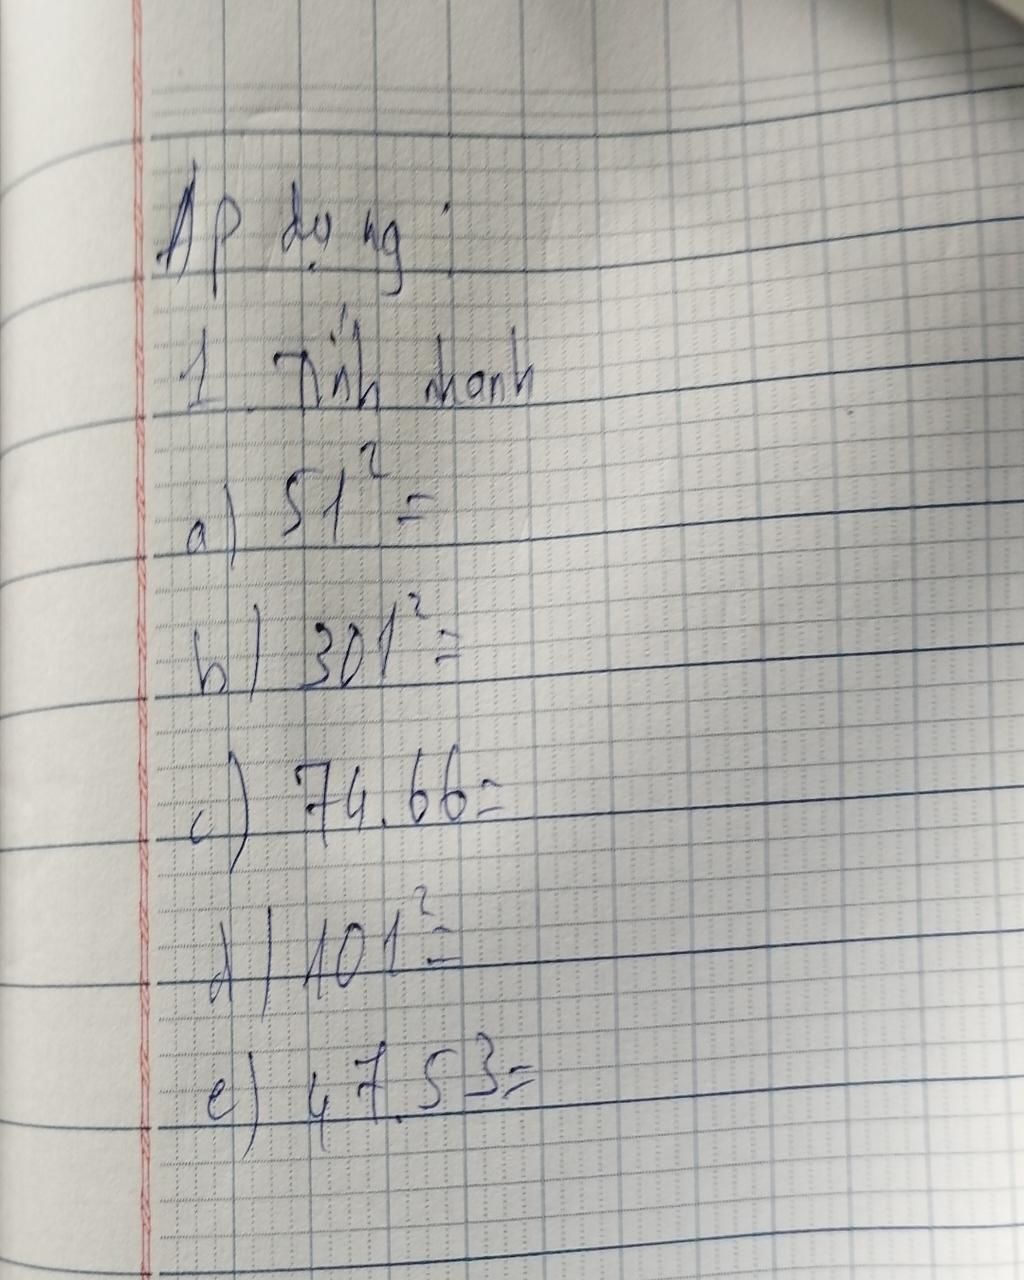 Áp dụng :
1. Tính nhanh
a) 51² =
b) 301² =
c) 74.66 =
d) 101² =
e) 47.53 =